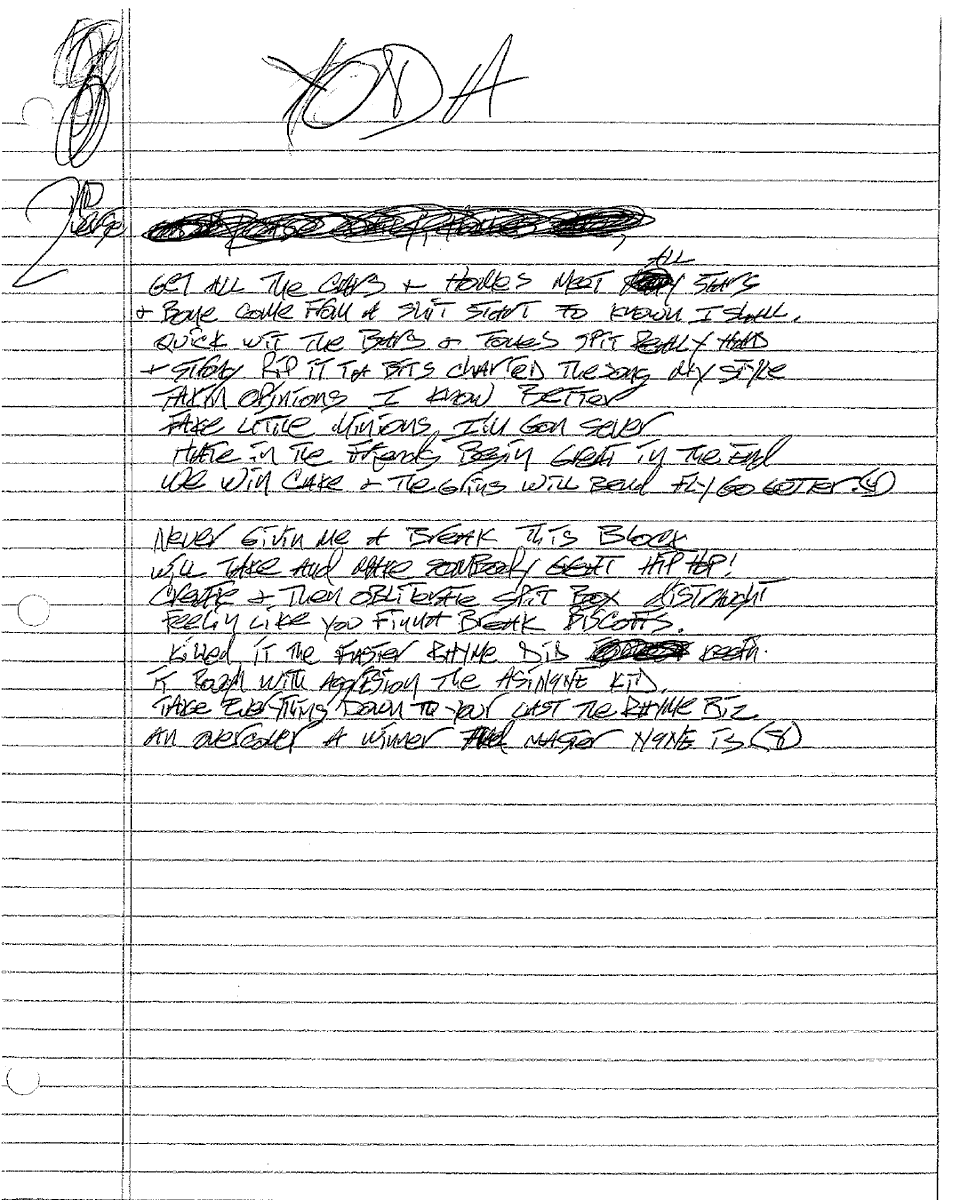 YODA
2ND VERSE
GET ALL THE CARS + HOMES MEET ALL STARS
+ BONE COME FROM A SHIT START TO KNOWN I SHALL.
QUICK WIT THE BARS + TONES SPIT REALLY HARD
+ STRONG RIP IT TA BITS CHARTED THE SONG MY STYLE
THEM OPINIONS I KNOW BETTER
FAKE LITTLE MINIONS I'M GON SEVER
HATE IN THE FRIENDS BEGIN GREAT IN THE END
WE WIN CAKE + THE GRINS WILL BEND FLY GO GETTER. (4)
NEVER GIVIN ME A BREAK THIS BLOCK
WILL TAKE AND MAKE SOMBODY GREAT HIP HOP!
CREATE + THEN OBLITERATE SPIT BOX DISTRAUGHT
FEELIN LIKE YOU FINNA BREAK BISCOTTS.
KILLED IT THE FASTER RHYME DID
IT BOOM WITH AGGRESSION THE ASIN9NE KID.
TAKE EVERYTHING DOWN TO YOUR LAST THE RHYME BIZ
AN OVERCOMER A WINNER AND MASTER N9NE IS (8)